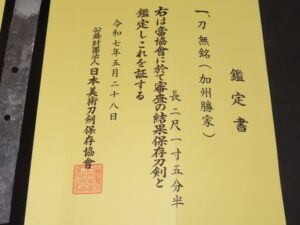 鑑定書
一、刀 無銘(加州勝家)
長 二尺一寸五分半
右は當協會に於て審査の結果保存刀剣と
鑑定しこれを証する
令和七年五月二十八日
公益財団法人 日本美術刀剣保存協會